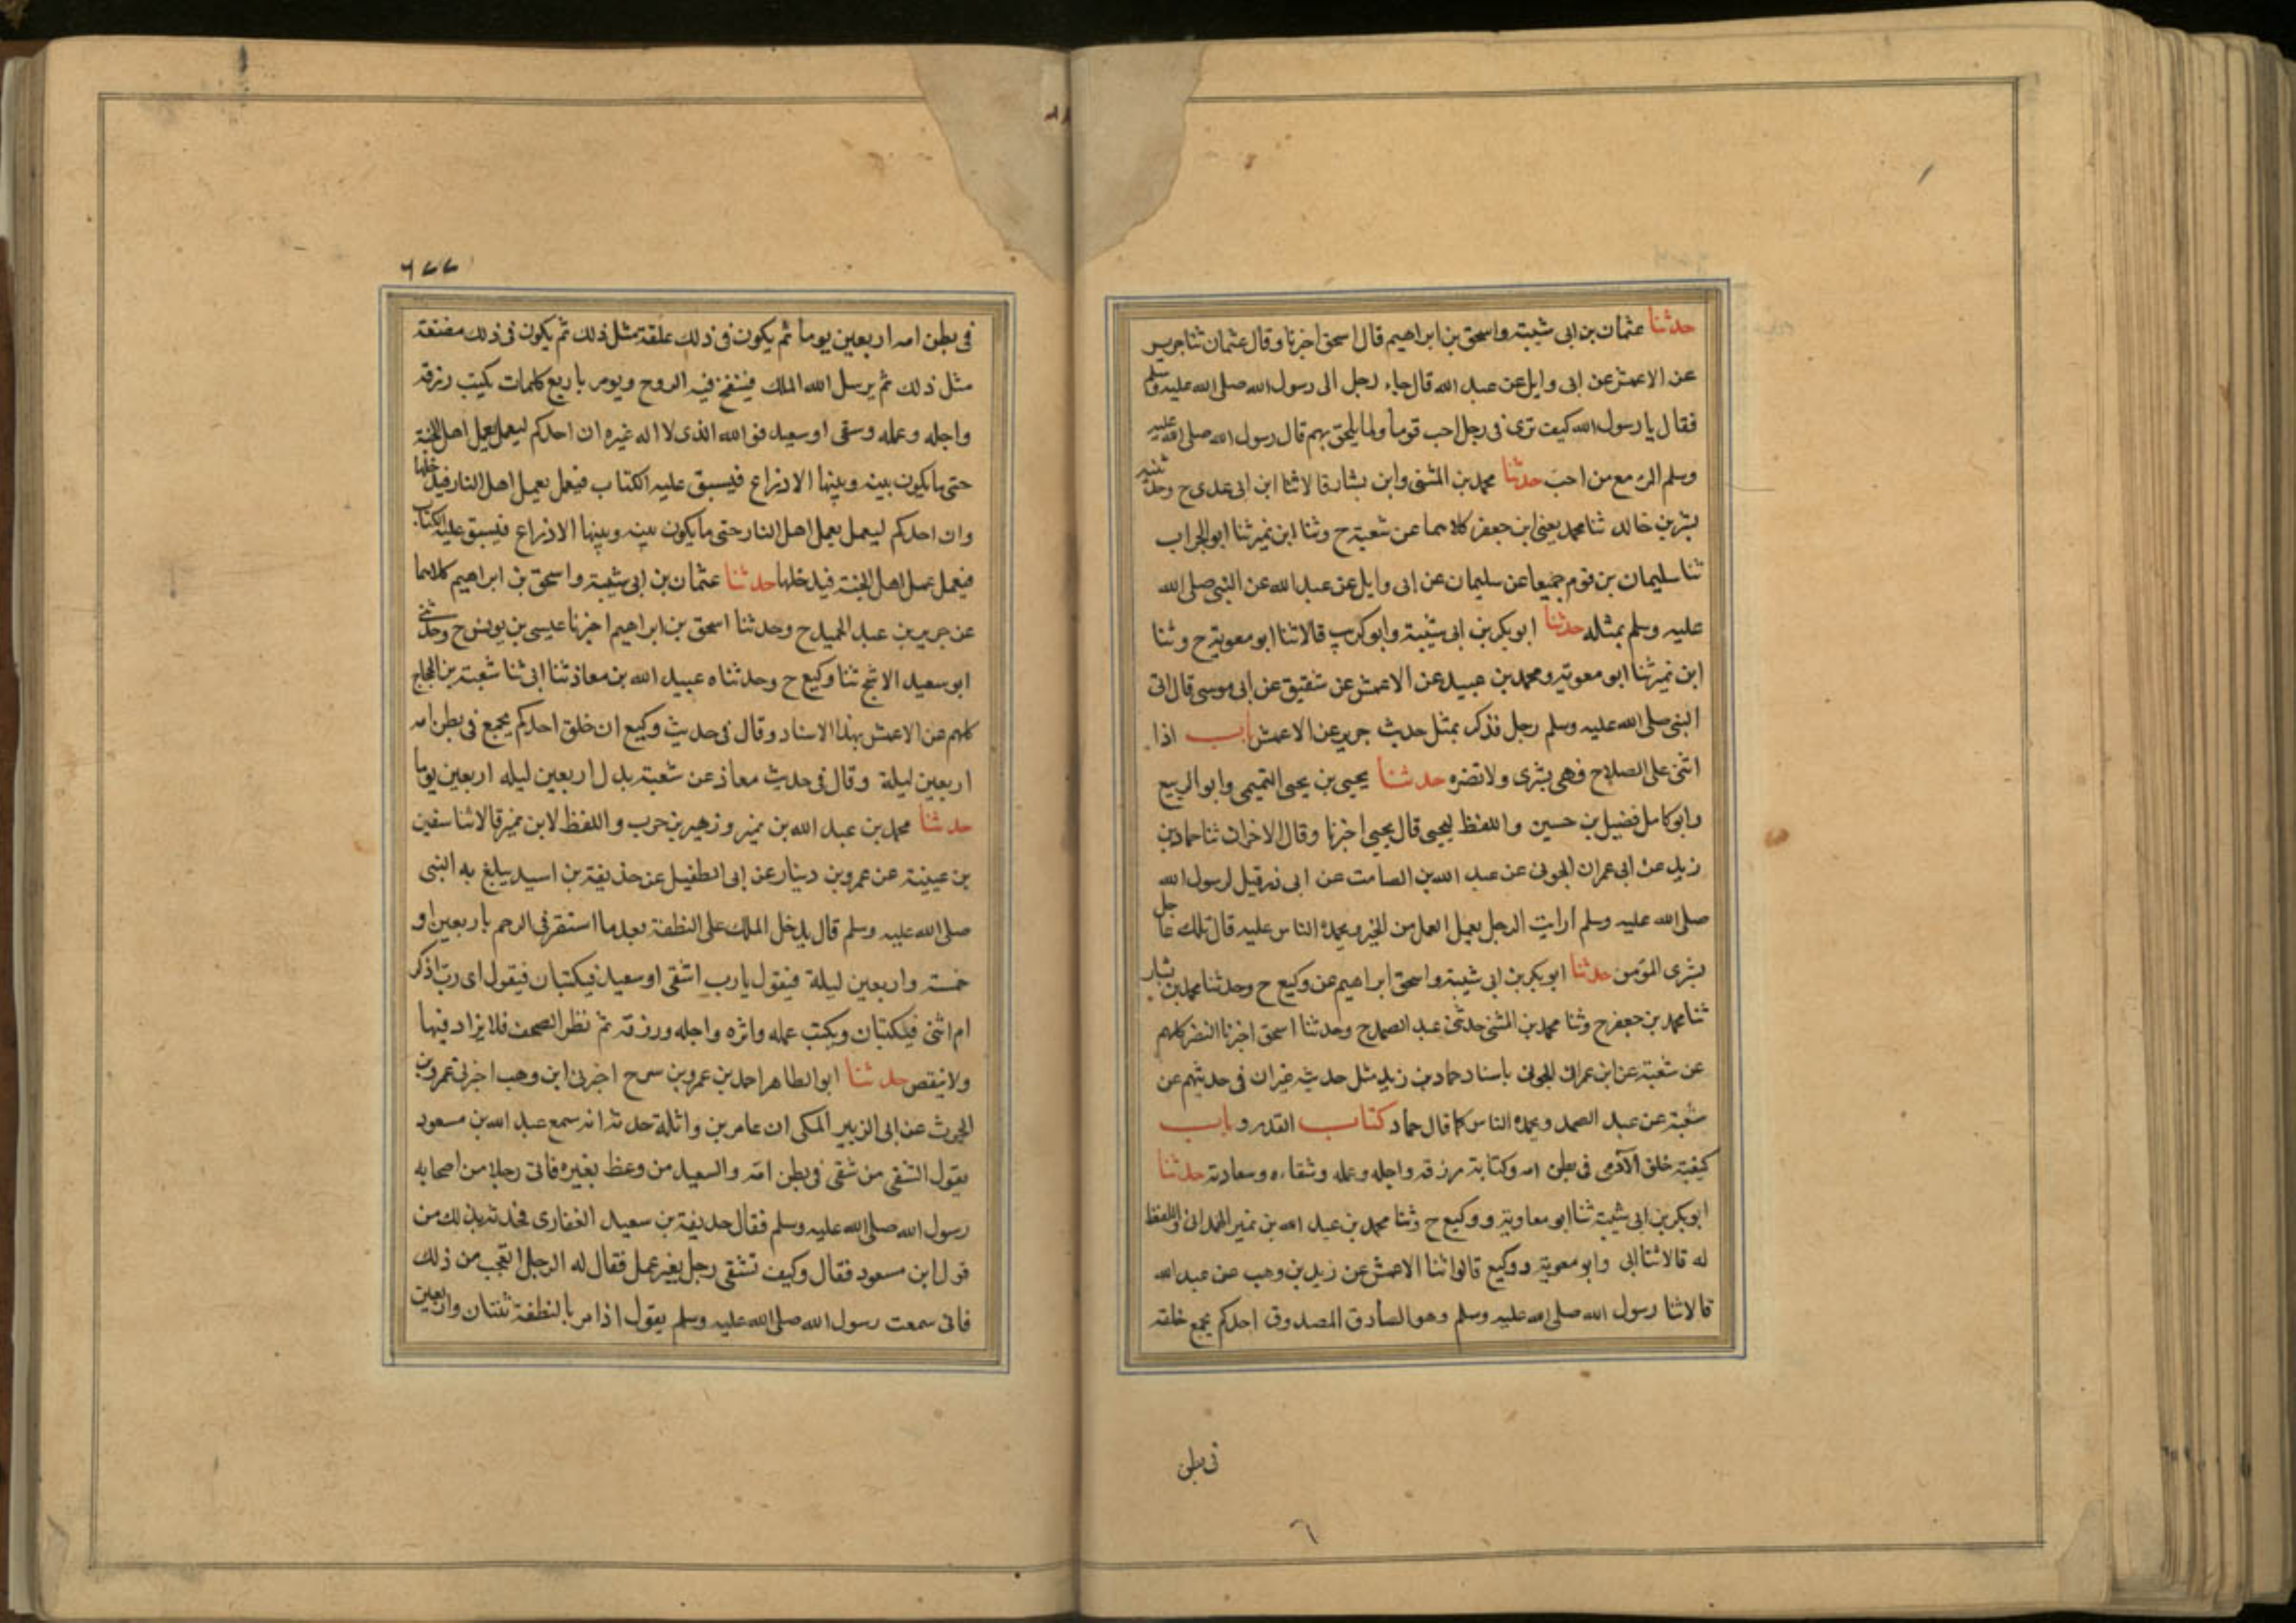 حدثنا عثمان بن ابى شيبة واسحق بن ابراهيم قال اسحق اخبرنا وقال عثمان ثنا جرير
عن الاعمش عن ابى وايل عن عبد الله قال جاء رجل الى رسول الله صلى الله عليه وسلم
فقال يا رسول الله كيف ترى فى رجل احب قوما ولما يلحق بهم قال رسول الله صلى الله عليه
وسلم المرء مع من احب حدثنا محمد بن المثنى وابن بشار قالا ثنا ابن ابى عدى ح وحدثنيه
بشر بن خالد ثنا محمد يعنى ابن جعفر كلاهما عن شعبة ح وثنا ابن نمير ثنا ابو الجراب
ثنا سليمان بن قوم جميعا عن سليمان عن ابى وايل عن عبد الله عن النبى صلى الله
عليه وسلم بمثله حدثنا ابو بكر بن ابى شيبة وابو كريب قالا ثنا ابو معوية ح وثنا
ابن نمير ثنا ابو معوية ومحمد بن عبيد عن الاعمش عن شقيق عن ابى موسى قال اتى
النبى صلى الله عليه وسلم رجل فذكر بمثل حديث جرير عن الاعمش باب اذا
اثنى على الصلاح فهى بشرى ولا تضره حدثنا يحيى بن يحيى التميمى وابو الربيع
وابو كامل فضيل بن حسين واللفظ ليحيى قال يحيى اخبرنا وقال الاخران ثنا حماد بن
زيد عن ابى عمران الجونى عن عبد الله بن الصامت عن ابى ذر قيل لرسول الله
صلى الله عليه وسلم ارايت الرجل يعمل العمل من الخير ويحمده الناس عليه قال تلك عاجل
بشرى المؤمن حدثنا ابو بكر بن ابى شيبة واسحق ابراهيم عن وكيع ح وحدثنا محمد بن بشار
ثنا محمد بن جعفر ح وثنا محمد بن المثنى حدثنى عبد الصمد ح وحدثنا اسحق اخبرنا النضر كلهم
عن شعبة عن ابن عمران الجونى باسناد حماد بن زيد مثل حديثه غير ان فى حديثهم عن
شعبة عن عبد الصمد ويحمده الناس كما قال حماد كتاب القدر وباب
كيفية خلق الآدمى فى بطن امه وكتابة رزقه واجله وعمله وشقاءه وسعادته حدثنا
ابو بكر بن ابى شيبة ثنا ابو معاوية ووكيع ح وثنا محمد بن عبد الله بن نمير الهمدانى واللفظ
له قالا ثنا ابى وابو معوية ووكيع قالوا ثنا الاعمش عن زيد بن وهب عن عبد الله
قالا ثنا رسول الله صلى الله عليه وسلم وهو الصادق المصدوق احدكم يجمع خلقه
فى بطن
٦
٦٧٧
فى بطن امه اربعين يوما ثم يكون فى ذلك علقة مثل ذلك ثم يكون فى ذلك مضغة
مثل ذلك ثم يرسل الله الملك فينفخ فيه الروح ويومر باربع كلمات يكتب رزقه
واجله وعمله وشقى او سعيد فو الله الذى لا اله غيره ان احدكم ليعمل بعمل اهل الجنة
حتى ما يكون بينه وبينها الا ذراع فيسبق عليه الكتاب فيعمل بعمل اهل النار فيدخلها
وان احدكم ليعمل بعمل اهل النار حتى ما يكون بينه وبينها الا ذراع فيسبق عليه الكتاب
فيعمل عمل اهل الجنة فيدخلها حدثنا عثمان بن ابى شيبة واسحق بن ابراهيم كلاهما
عن جرير بن عبد الحميد ح وحدثنا اسحق بن ابراهيم اخبرنا عيسى بن يونس ح وحدثنى
ابو سعيد الاشج ثنا وكيع ح وحدثناه عبيد الله بن معاذ ثنا ابى ثنا شعبة بن الحجاج
كلهم عن الاعمش بهذا الاسناد وقال فى حديث وكيع ان خلق احدكم يجمع فى بطن امه
اربعين ليلة وقال فى حديث معاذ عن شعبة بدل اربعين ليله اربعين يوما
حدثنا محمد بن عبد الله بن نمير وزهير بن حرب واللفظ لابن نمير قالا ثنا سفين
بن عيينة عن عمرو بن دينار عن ابى الطفيل عن حذيفة بن اسيد يبلغ به النبى
صلى الله عليه وسلم قال يدخل الملك على النطفة بعد ما استقر فى الرحم باربعين او
خمسة واربعين ليلة فيقول يا رب اشقى او سعيد فيكتبان فيقول اى رب اذكر
ام انثى فيكتبان ويكتب عمله واثره واجله ورزقه ثم نظر الصحف فلا يزاد فيها
ولا ينقص حدثنا ابو الطاهر احمد بن عمرو بن سرح اخبرنى ابن وهب اخبرنى عمرو بن
الحرث عن ابى الزبير المكى ان عامر بن واثلة حدثه انه سمع عبد الله بن مسعود
يقول الشقى من شقى فى بطن امه والسعيد من وعظ بغيره فاتى رجلا من اصحابه
رسول الله صلى الله عليه وسلم فقال حديفة بن سعيد الغفارى فحدثه بذلك من
قول ابن مسعود فقال وكيف تشقى رجل بغير عمل فقال له الرجل اتعجب من ذلك
فانى سمعت رسول الله صلى الله عليه وسلم يقول اذا مر بالنطفة ثنتان واربعين